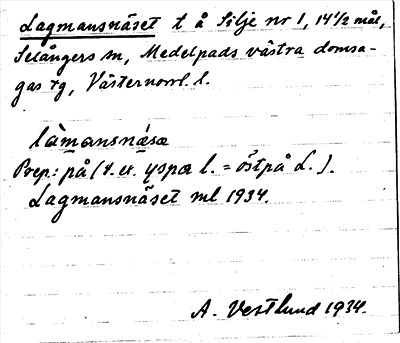 Lagmansnäset t å Silje nr 1, 14 1/2 mål,
Selångers sn, Medelpads västra domsa-
gas tg, Västernorrl. l.
làmansnása
Prep: på (t. ex. yspa l. = östpå L.).
Lagmansnäset ml 1934.
A. Vestlund 1934.